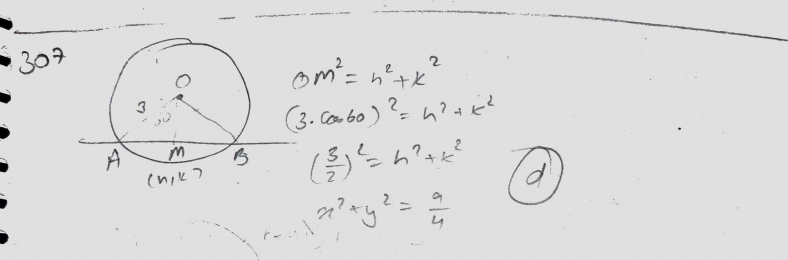 307
O
3
60
A M B
(h,k)
OM² = h² + k²
(3.cos60)² = h² + k²
(3/2)² = h² + k²
x² + y² = 9/4
d